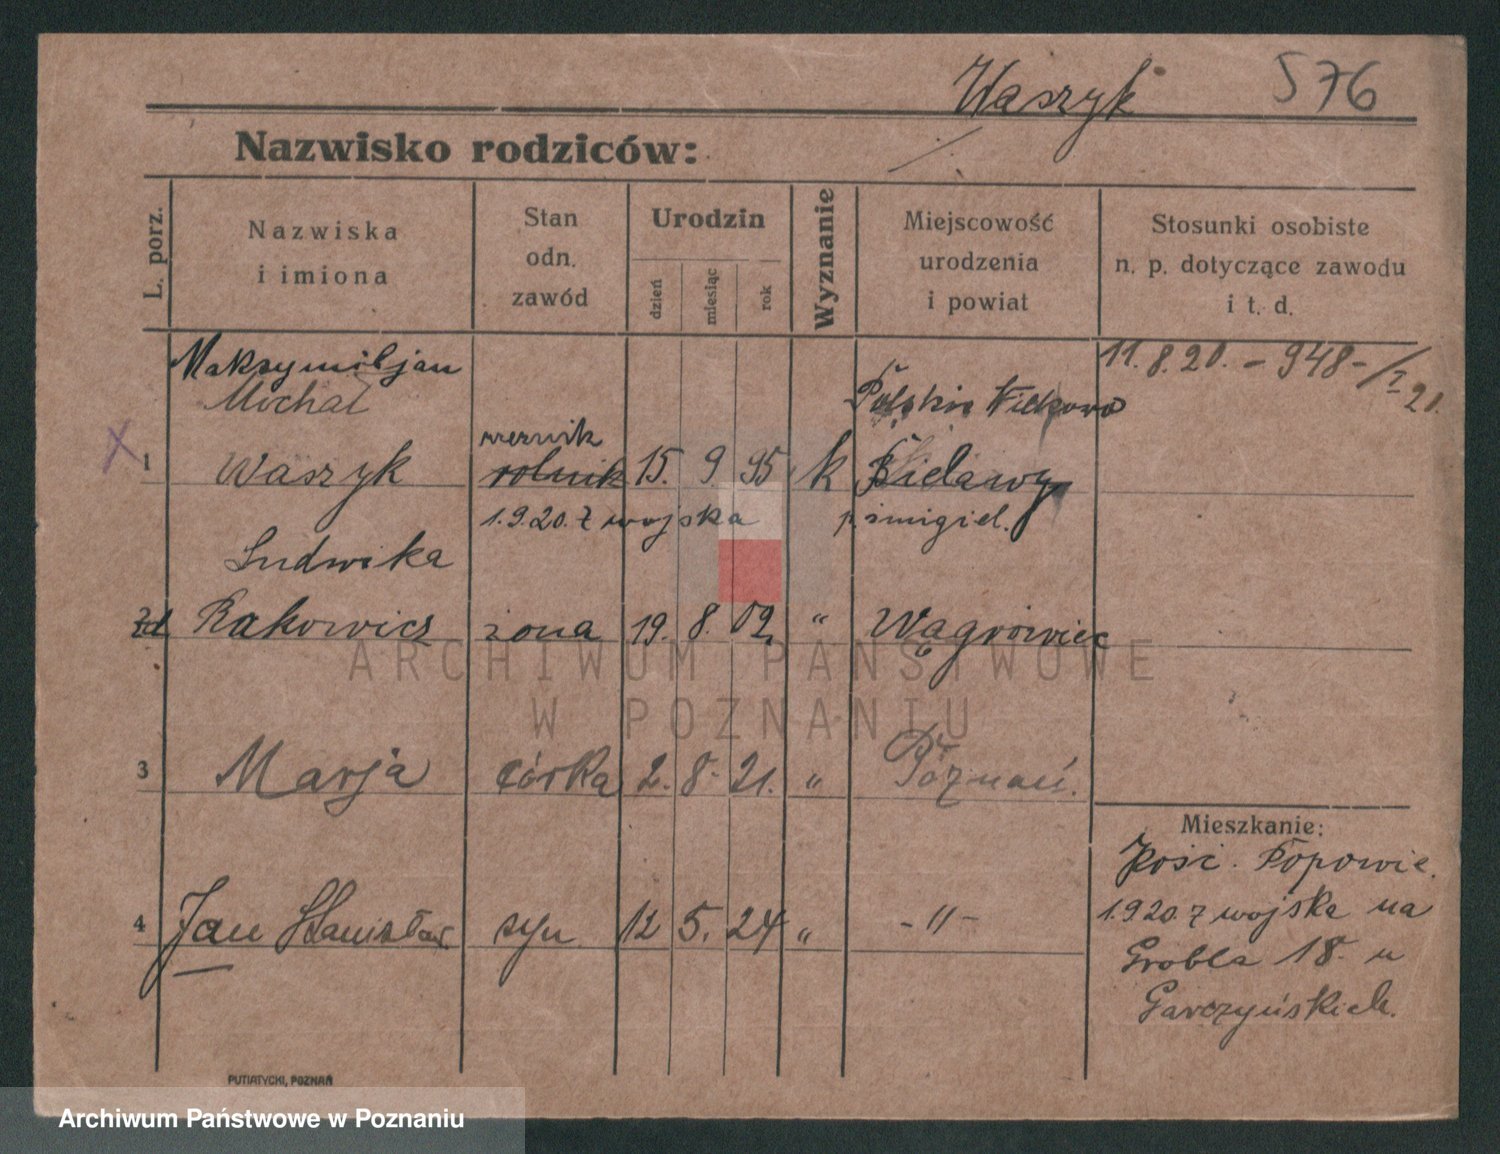 Waszyk 576
Nazwisko rodziców:
L. porz.
Nazwiska
i imiona
Stan
odn.
zawód
Urodzin
dzień
miesiąc
rok
Wyznanie
Miejscowość
urodzenia
i powiat
Stosunki osobiste
n. p. dotyczące zawodu
i t. d.
Maksymiljan
Michał
11.8.20. - 948 -
Polskie
1 Waszyk rolnik 15. 9. 95 k Bielawy
1.9.20. z wojska p śmigiel.
Ludwika
Rakowicz żona 19. 8. 02. " Wągrowiec
3 Marja córka 2. 8. 21. " Poznań.
4 Jan Stanisław syn 12 5. 24 " -"-
Mieszkanie:
1.9.20 z wojska na
Grobla 18. u
Garczyńskich.
PUTIATYCKI, POZNAŃ
ARCHIWUM PAŃSTWOWE
W POZNANIU
Archiwum Państwowe w Poznaniu